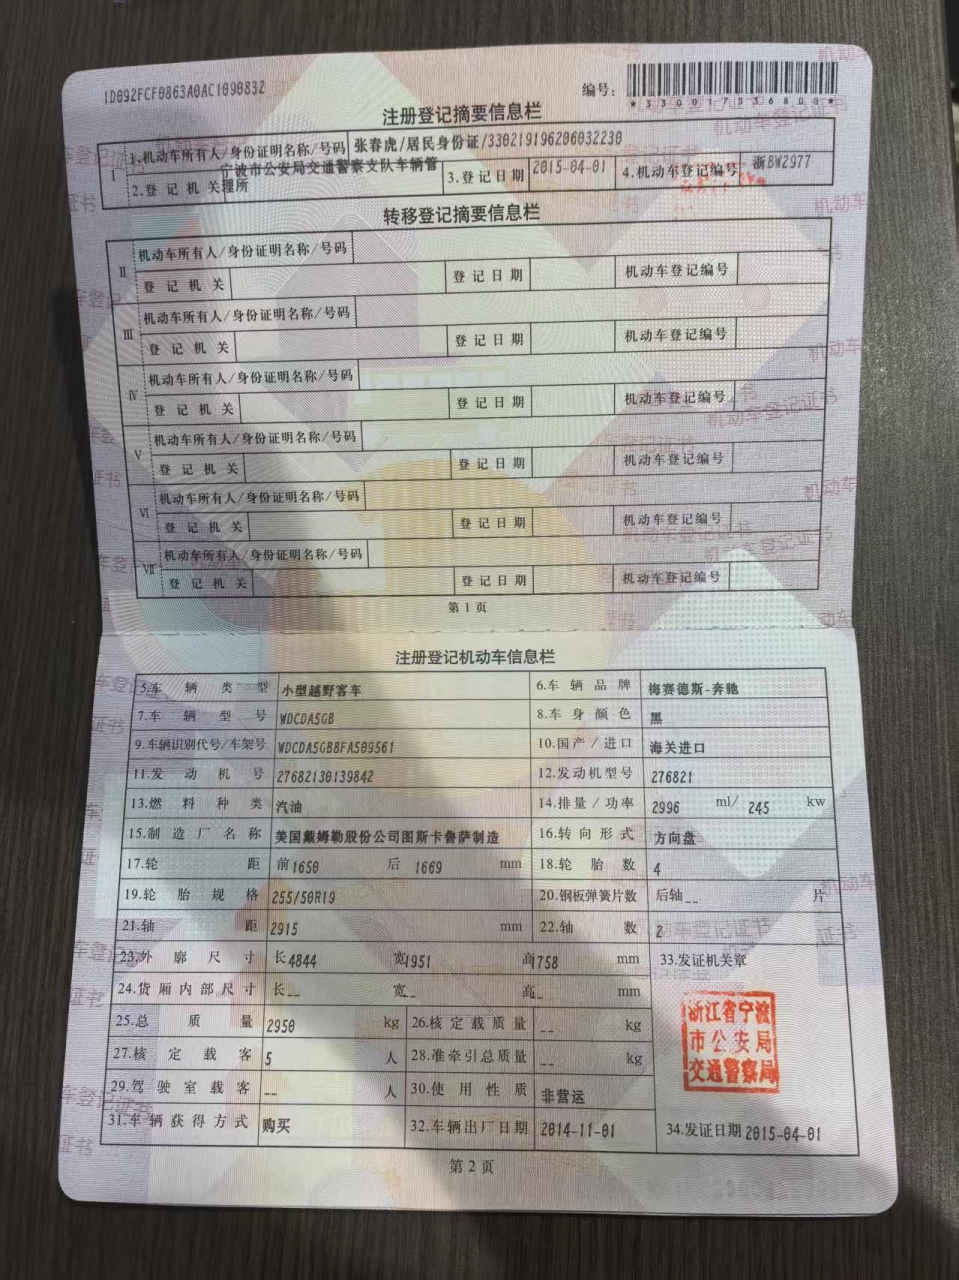 1D092FCF0863A0AC1090832
编号:
*330017536800*
注册登记摘要信息栏
I 1.机动车所有人/身份证明名称/号码 张春虎/居民身份证/330219196206032230
2.登记机关 宁波市公安局交通警察支队车辆管理所 3.登记日期 2015-04-01 4.机动车登记编号 浙BW2977
转移登记摘要信息栏
II 机动车所有人/身份证明名称/号码
登记机关 登记日期 机动车登记编号
III 机动车所有人/身份证明名称/号码
登记机关 登记日期 机动车登记编号
IV 机动车所有人/身份证明名称/号码
登记机关 登记日期 机动车登记编号
V 机动车所有人/身份证明名称/号码
登记机关 登记日期 机动车登记编号
VI 机动车所有人/身份证明名称/号码
登记机关 登记日期 机动车登记编号
VII 机动车所有人/身份证明名称/号码
登记机关 登记日期 机动车登记编号
第1页
注册登记机动车信息栏
5.车辆类型 小型越野客车 6.车辆品牌 梅赛德斯-奔驰
7.车辆型号 WDCDA5GB 8.车身颜色 黑
9.车辆识别代号/车架号 WDCDA5GB8FA509561 10.国产/进口 海关进口
11.发动机号 27682130139842 12.发动机型号 276821
13.燃料种类 汽油 14.排量/功率 2996 ml/ 245 kw
15.制造厂名称 美国戴姆勒股份公司图斯卡鲁萨制造 16.转向形式 方向盘
17.轮距 前1650 后 1669 mm 18.轮胎数 4
19.轮胎规格 255/50R19 20.钢板弹簧片数 后轴-- 片
21.轴距 2915 mm 22.轴数 2
23.外廓尺寸 长4844 宽1951 高1758 mm 33.发证机关章
24.货厢内部尺寸 长-- 宽-- 高-- mm
浙江省宁波
市公安局
交通警察局
25.总质量 2950 kg 26.核定载质量 -- kg
27.核定载客 5 人 28.准牵引总质量 -- kg
29.驾驶室载客 -- 人 30.使用性质 非营运
31.车辆获得方式 购买 32.车辆出厂日期 2014-11-01 34.发证日期 2015-04-01
第2页